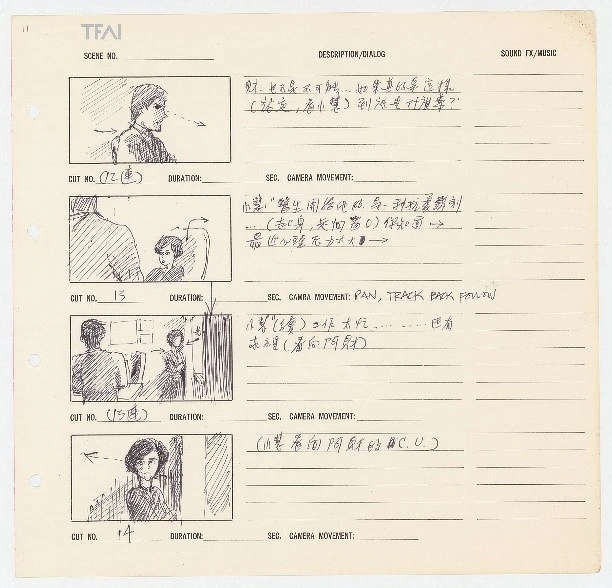 11
TFAI
SCENE NO.
DESCRIPTION/DIALOG
SOUND FX/MUSIC
財. 也不是不可能... 如果真的是這樣
(講完,看小慧) 到底是什麼藥?
CUT NO. (12連) DURATION: SEC. CAMERA MOVEMENT:
小慧" 醫生開給他的是一種抗憂鬱劑
... (起身, 走向窗口) 你知道→
最近心理壓力太大→
CUT NO. 13 DURATION: SEC. CAMRA MOVEMENT: PAN, TRACK BACK FOLLOW
小慧"(續) 工作太忙.... ..... 還有
(看向阿財)
CUT NO. (13連) DURATION: SEC. CAMERA MOVEMENT:
(小慧看向阿財的 C.U.)
CUT NO. 14 DURATION: SEC. CAMERA MOVEMENT: